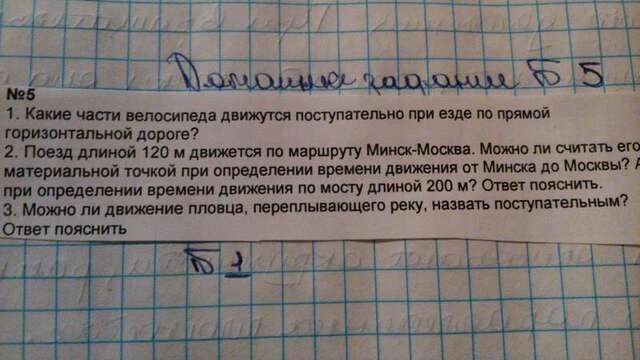 Домашнее задание Б 5
№5
1. Какие части велосипеда движутся поступательно при езде по прямой
горизонтальной дороге?
2. Поезд длиной 120 м движется по маршруту Минск-Москва. Можно ли считать его
материальной точкой при определении времени движения от Минска до Москвы? А
при определении времени движения по мосту длиной 200 м? Ответ пояснить.
3. Можно ли движение пловца, переплывающего реку, назвать поступательным?
Ответ пояснить
Б 1